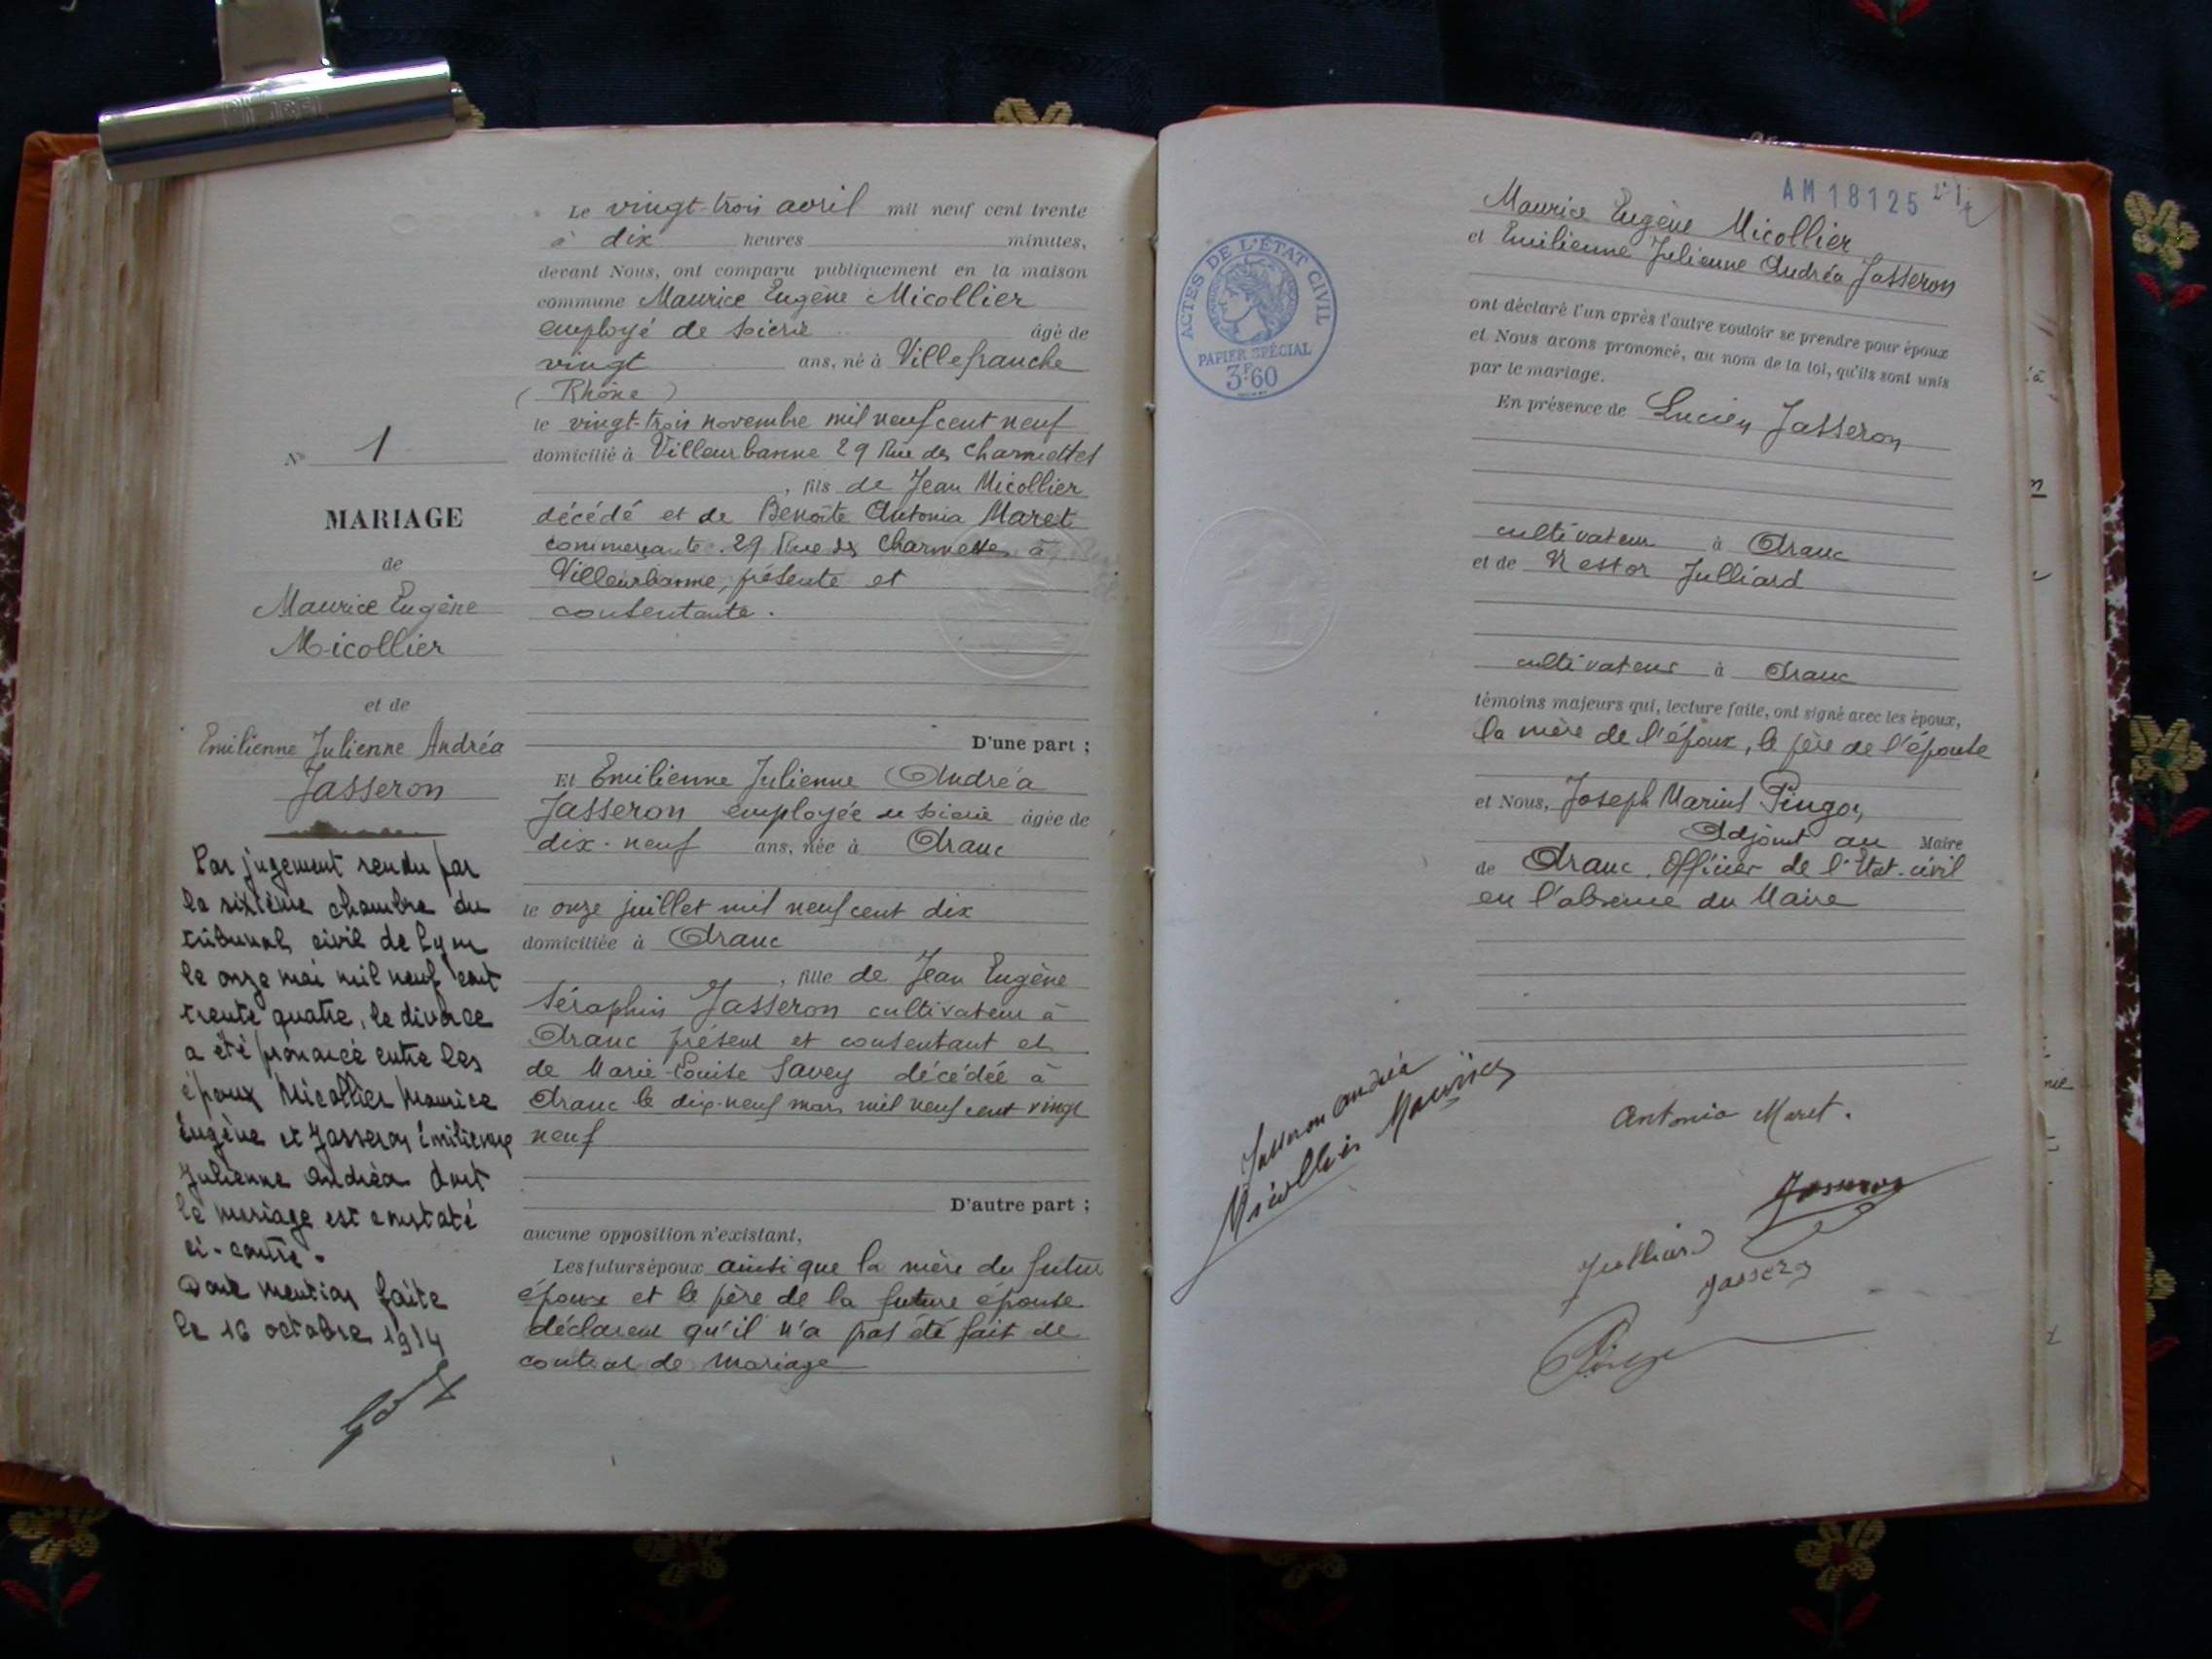 Le vingt-trois avril mil neuf cent trente
à dix heures minutes,
devant Nous, ont comparu publiquement en la maison
commune Maurice Eugène Micollier
employé de soierie âgé de
vingt ans, né à Villefranche
(Rhône)
le vingt-trois novembre mil neuf cent neuf
domicilié à Villeurbanne 29 Rue des Charmettes
, fils de Jean Micollier
décédé et de Benoîte Antonia Maret
commerçante. 29 Rue des Charmettes à
Villeurbanne, présente et
consentante.
D'une part ;
Et Emilienne Julienne Andréa
Jasseron employée de soierie âgée de
dix-neuf ans, née à Aranc
le onze juillet mil neuf cent dix
domiciliée à Aranc
, fille de Jean Eugène
Séraphin Jasseron cultivateur à
Aranc présent et consentant et
de Marie-Louise Savey décédée à
Aranc le dix-neuf mars mil neuf cent vingt
neuf
D'autre part ;
aucune opposition n'existant,
Les futurs époux ainsi que la mère du futur
époux et le père de la future épouse
déclarent qu'il n'a pas été fait de
contrat de mariage
N° 1
MARIAGE
de
Maurice Eugène
Micollier
et de
Emilienne Julienne Andréa
Jasseron
Par jugement rendu par
la sixième chambre du
tribunal civil de Lyon
le onze mai mil neuf cent
trente quatre, le divorce
a été prononcé entre les
époux Micollier Maurice
Eugène et Jasseron Emilienne
Julienne Andréa dont
le mariage est constaté
ci-contre.
Dont mention faite
le 16 octobre 1934
AM18125
ACTES DE L'ÉTAT CIVIL
PAPIER SPÉCIAL
3F60
Maurice Eugène Micollier
et Emilienne Julienne Andréa Jasseron
ont déclaré l'un après l'autre vouloir se prendre pour époux
et Nous avons prononcé, au nom de la loi, qu'ils sont unis
par le mariage.
En présence de Lucien Jasseron
cultivateur à Aranc
et de Nestor Julliard
cultivateur à Aranc
témoins majeurs qui, lecture faite, ont signé avec les époux,
la mère de l'époux, le père de l'épouse
et Nous, Joseph Marius Pingon,
Adjoint au Maire
de Aranc, Officier de l'Etat-civil
en l'absence du Maire
Jasseron Andréa
Micollier Maurice
Antonia Maret.
Jasseron
Julliard
Jasseron